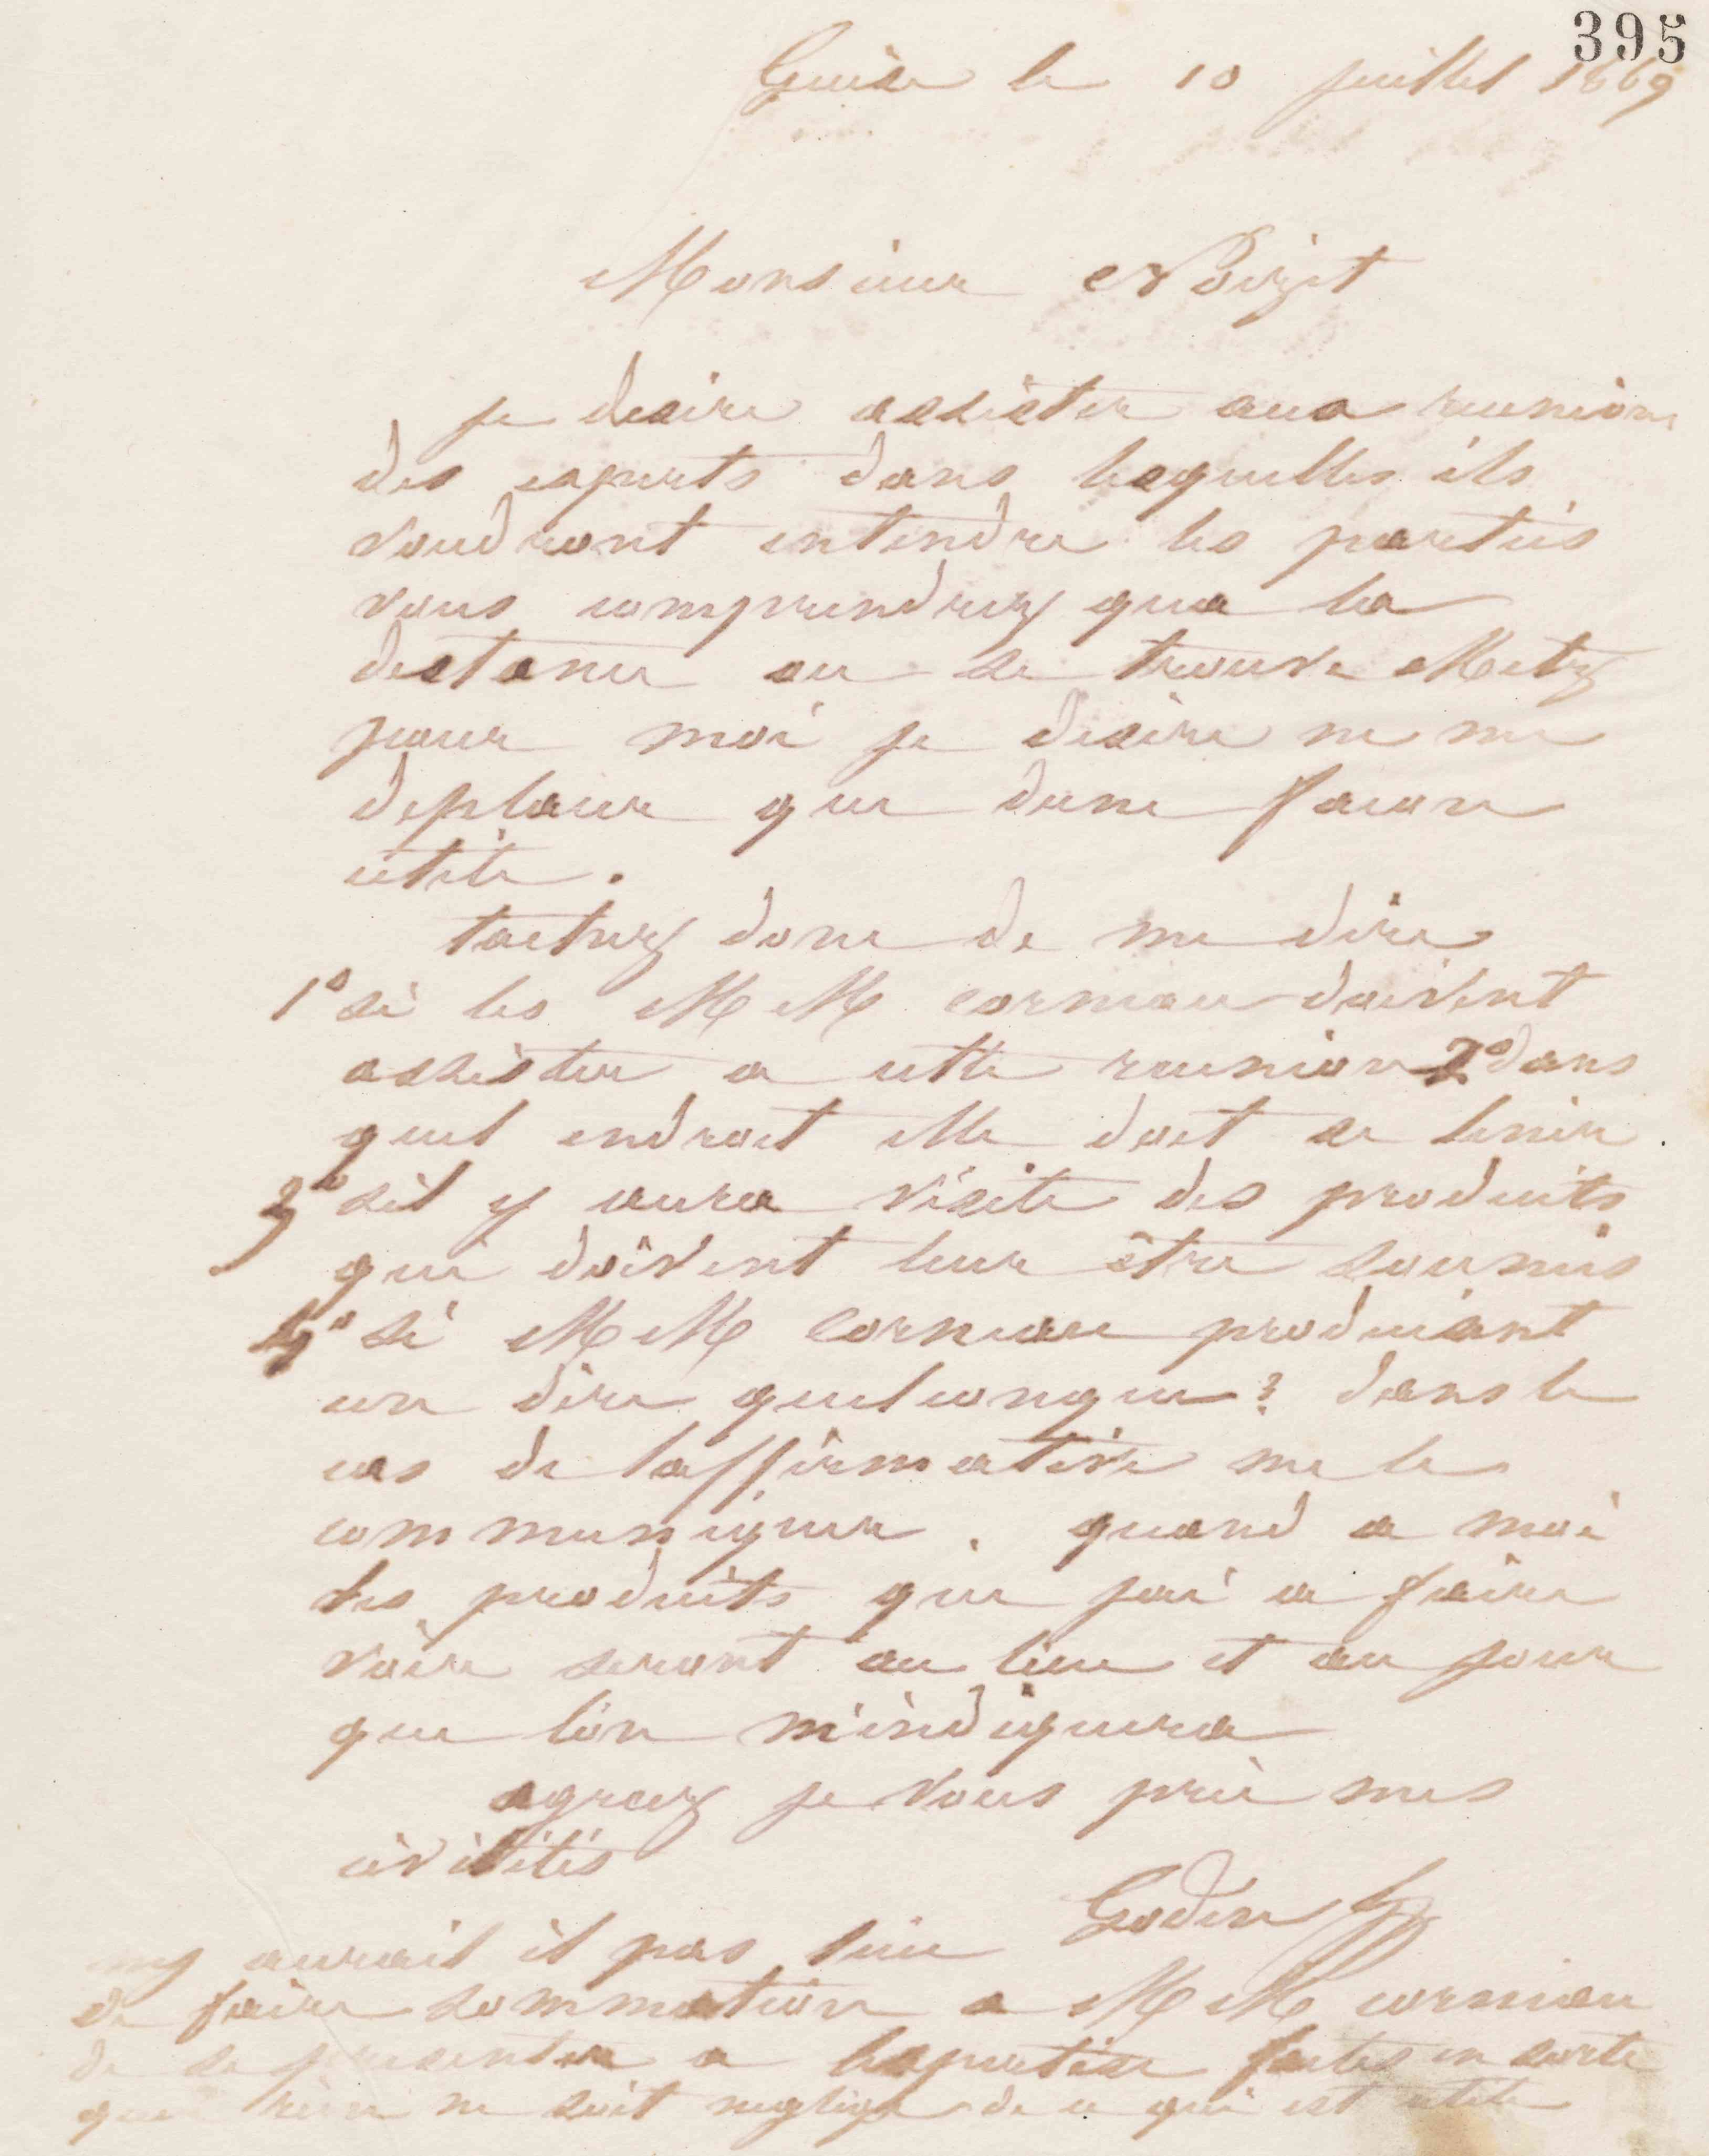 395
Guise le 10 juillet 1869
Monsieur Noizet
je desire assister aux reunions
des experts dans lesquelles ils
voudront entendre les parties
vous comprendrez qua la
distance ou se trouve Metz
pour moi je desire ne me
deplacer que dune facon
utile.
tachez donc de me dire
1° si les MM corneau doivent
assister a cette reunion 2° dans
quel endroit elle doit se tenir.
3° sil y aura visite des produits
qui doivent leur être soumis
4° si MM Corneau produisent
un dire quelconque? dans le
cas de laffirmative me le
communiquer. quand a moi
les produits que jai a faire
voir seront au lieu et au jour
que l'on m'indiquera
agreez je vous prie mes
civilités
Godin
ny aurait il pas lieu
de faire sommation a MM corneau
de se presenter a lexpertise faites en sorte
que rien ne soit neglige de ce qui est utile